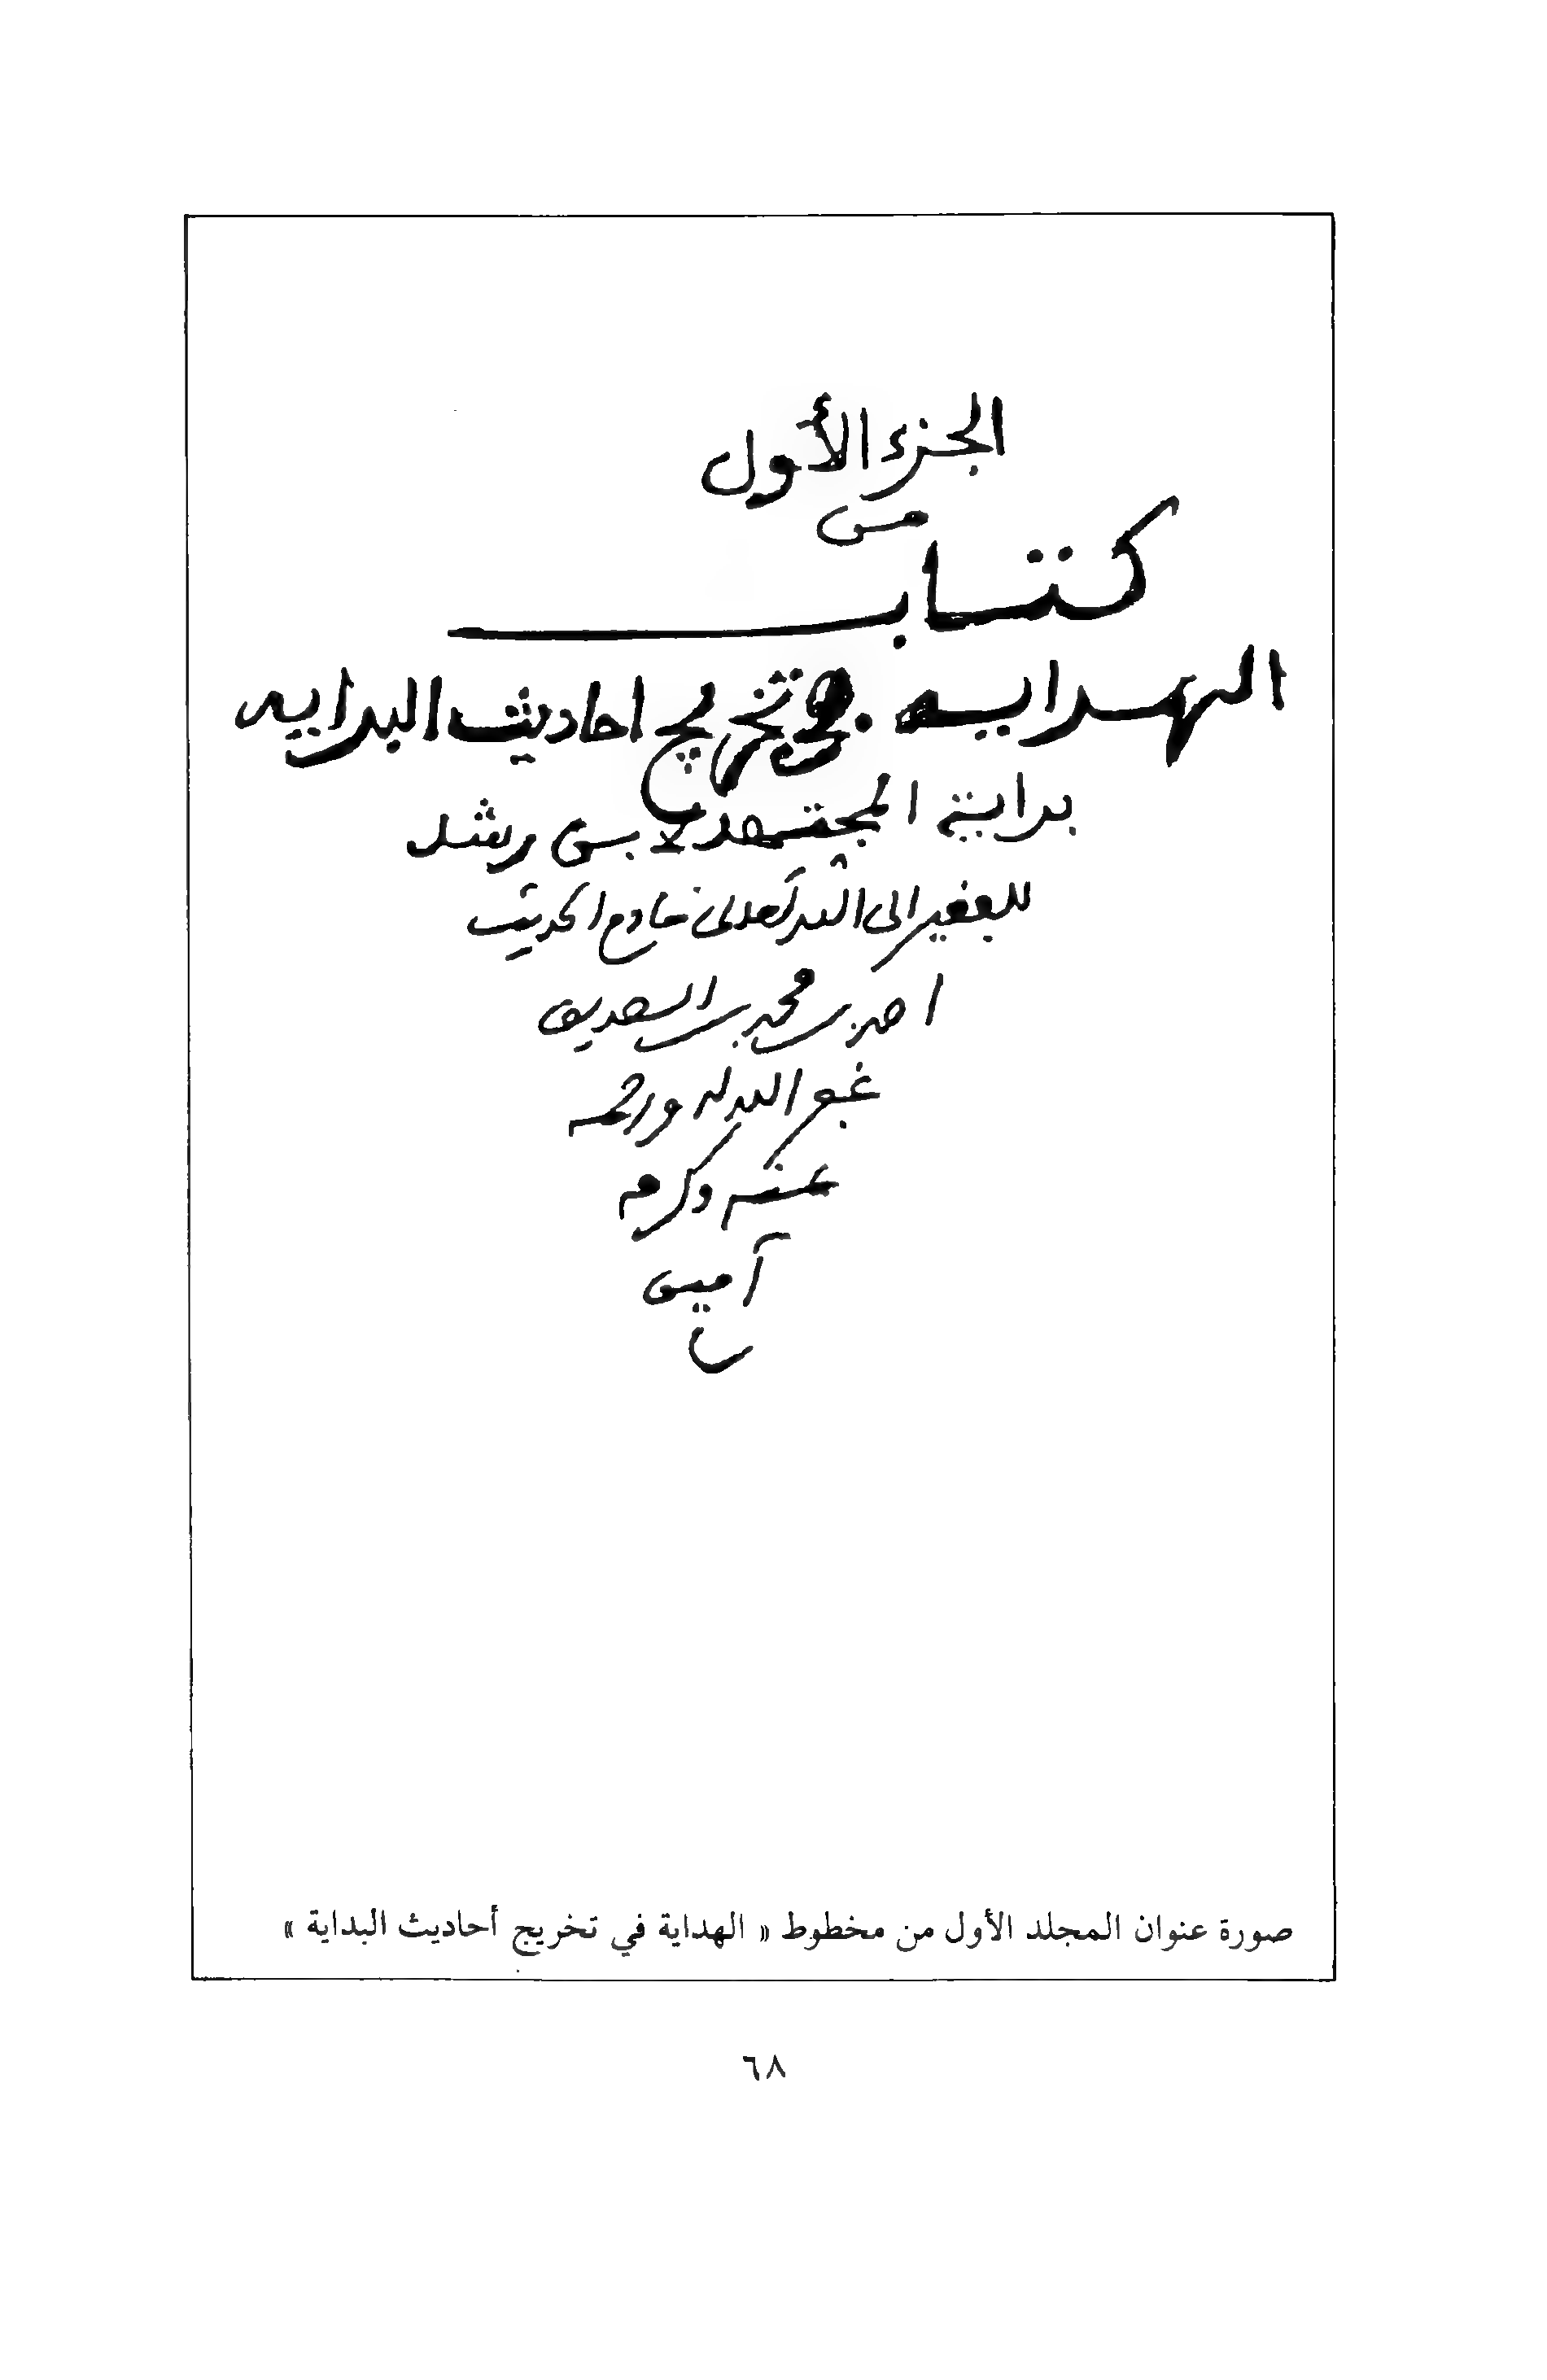 الجزء الأول
من
كتاب
الهدايه في تخريج احاديث البدايه
بداية المجتهد لابن رشد
للفقير الى الله تعالى خادم الحديث
احمد بن محمد بن الصديق
غفر الله له ورحمه
بمنه وكرمه
آمين
صورة عنوان المجلد الأول من مخطوط « الهداية في تخريج أحاديث البداية »
٦٨